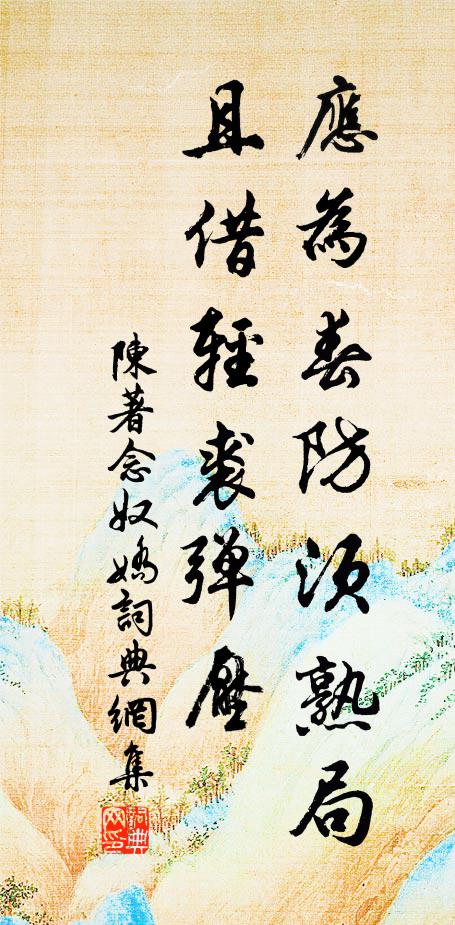 應為春防須熟局
且借輕裘彈壓
陳著念奴嬌詞典網集
詞典
网印